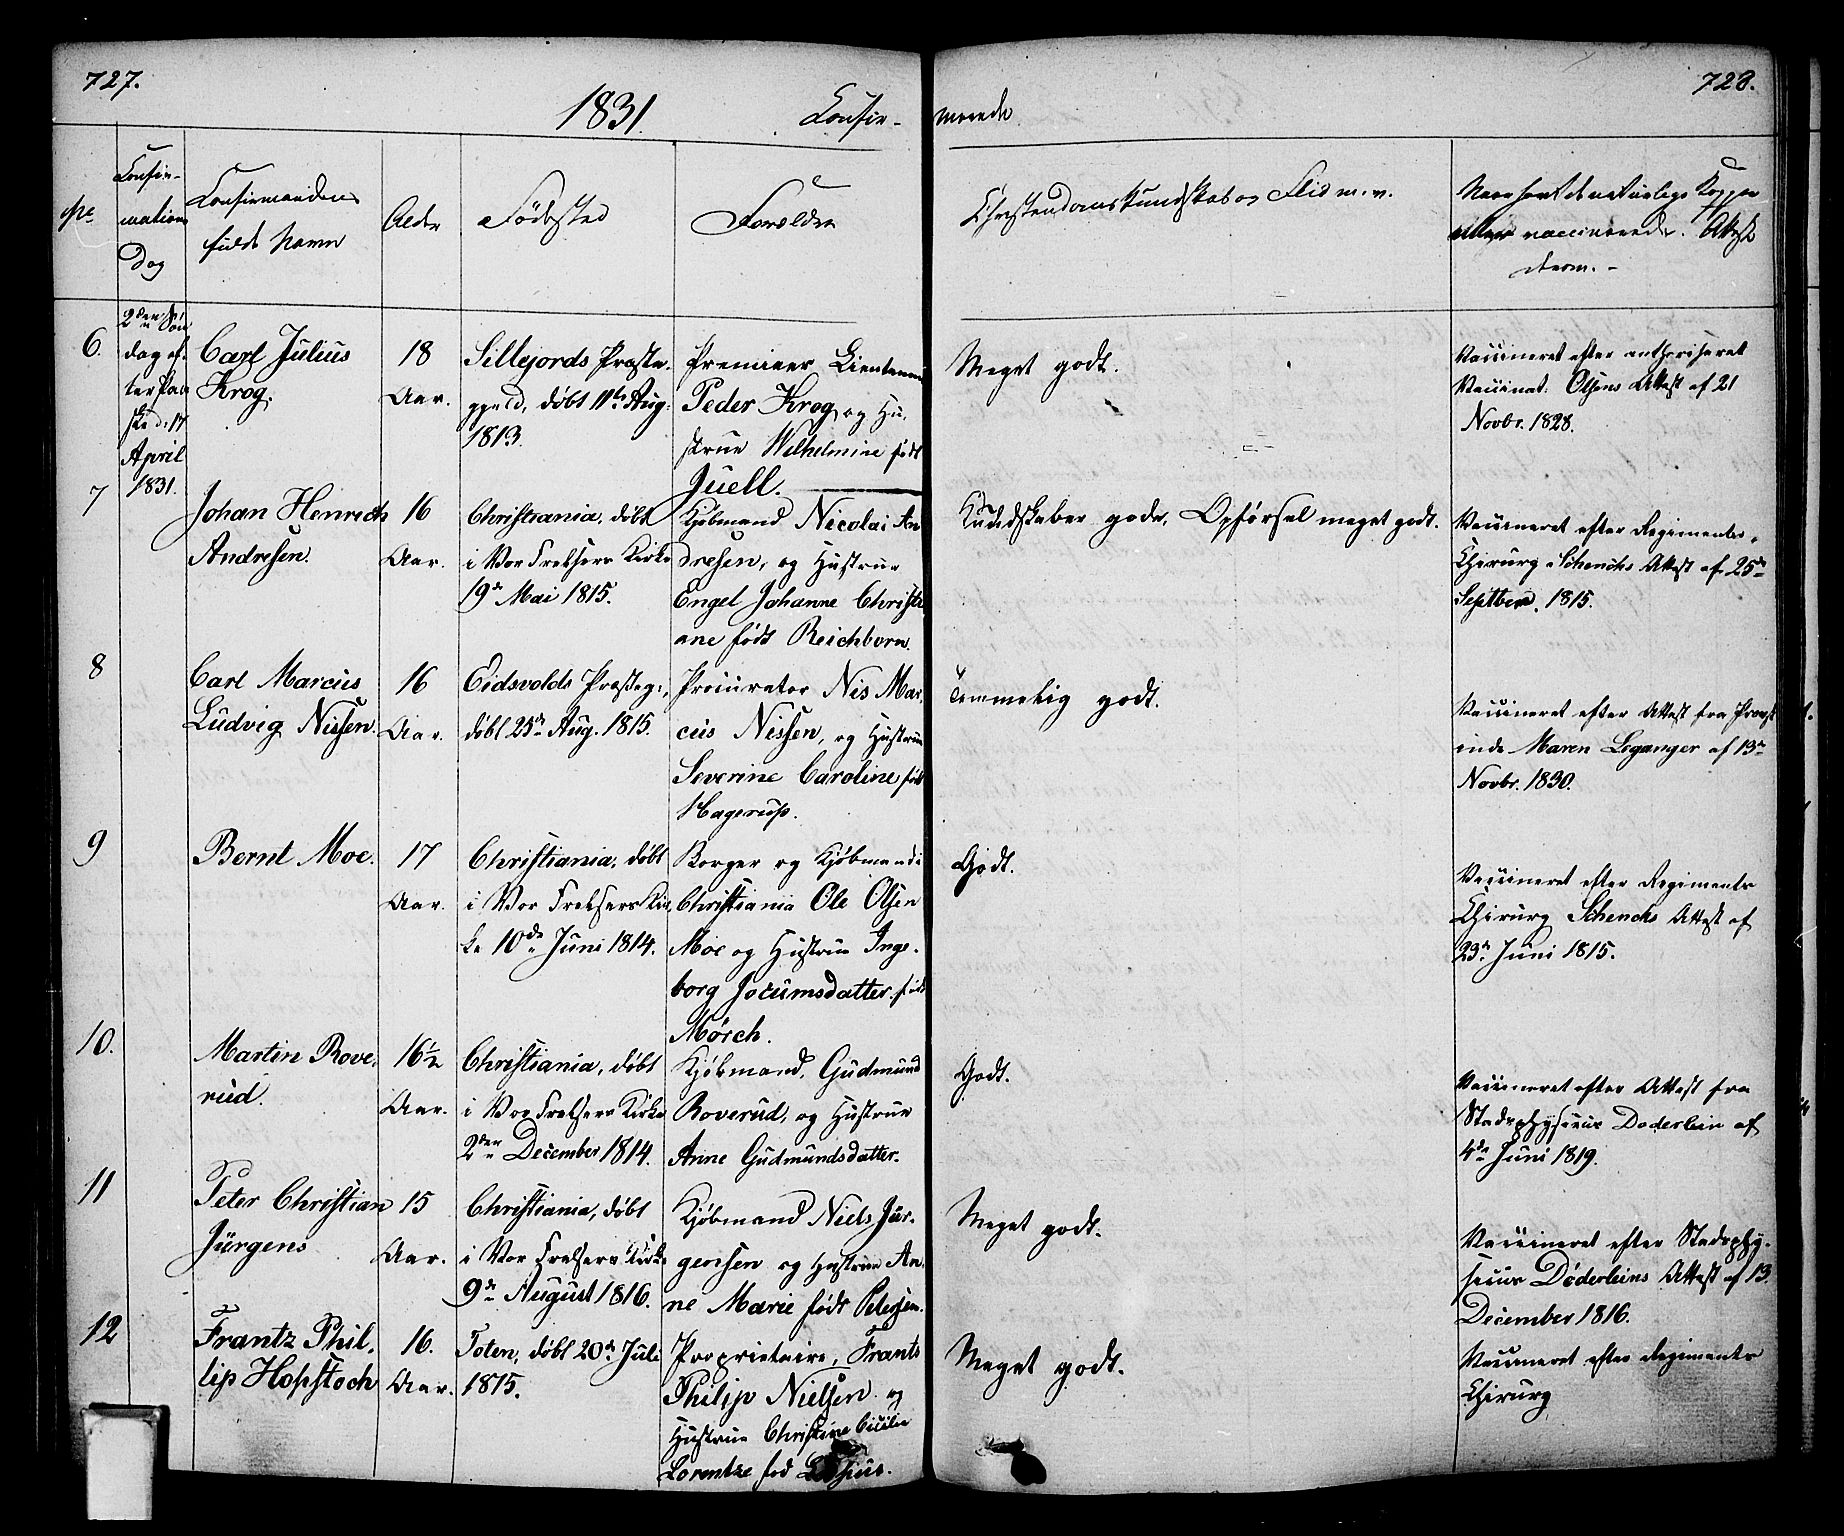 727.
1831.
Confir-
merede
728.
No
Confir-
mations
Dag
Confirmandens
fulde Navn
Alder
Fødested
Forældre
Christendomskundskab og Flid m. v.
Naar havt de naturlige Kopper
eller vaccinerede. Attest
derom. -
6.
2den Søn
dag ef-
ter Paa
ske d. 17
April
1831.
Carl Julius
Krog.
18
Aar.
Sillejords Præste-
gjeld, døbt 11te Aug.
1813.
Premieer Lieutenant
Peder Krog og Hu-
strue Wilhelmine født
Juell.
Meget godt.
Vaccineret efter authoriseret
Vaccinat. Olsens Attest af 21
Novbr. 1828.
7
Johan Henrich
Andresen.
16
Aar.
Christiania, døbt
i Vor Frelsers Kirke
19de Mai 1815.
Kjøbmand Nicolai An
dresen, og Hustrue
Engel Johanne Christi
ane født Reichborn.
Kundskaber gode, Opførsel meget godt.
Vaccineret efter Regiments-
Chirurg Schencks Attest af 25de
Septber. 1815.
8
Carl Marcus
Ludvig Nissen.
16
Aar.
Eidsvolds Præsteg.,
døbt 25de Aug. 1815.
Procurator Nis Mar-
cus Nissen, og Hustrue
Severine Caroline født
Hagerup.
Temmelig godt.
Vaccineret efter Attest fra Provst
inde Maren Leganger af 13de
Novbr. 1830.
9
Bernt Moe.
17
Aar.
Christiania, døbt
i Vor Frelsers Kir-
ke 10de Juni 1814.
Borger og Kjøbmand i
Christiania Ole Olsen
Moe og Hustrue Inge-
borg Jocumsdatter født
Mørch.
Godt.
Vaccineret efter Regiments
Chirurg Schencks Attest af
23de Juni 1815.
10.
Martin Rove-
rud.
16½
Aar.
Christiania, døbt
i Vor Frelsers Kirke
2den December 1814.
Kjøbmand, Gudmund
Roverud, og Hustrue
Anne Gudmundsdatter.
Godt.
Vaccineret efter Attest fra
Stadsphysicus Døderlein af
4de Juni 1819.
11
Peter Christian
Jürgens
15
Aar.
Christiania, døbt
i Vor Frelsers Kirke
9de August 1816.
Kjøbmand Niels Jür-
gensen og Hustrue An-
ne Marie født Petersen.
Meget godt.
Vaccineret efter Stadsphy-
sicus Døderleins Attest af 13
December 1816.
12
Frantz Phil-
lip Hopstoch
16.
Aar.
Toten, døbt 20de Juli
1815.
Proprietaire, Frants
Philip Nielsen og
Hustrue Christine Cicilie
Lorentze fød
Meget godt.
Vaccineret efter Regiments
Chirurg